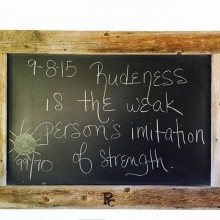 9-8-15 Rudeness
is the weak
person's imitation
99/70 of strength.
RC